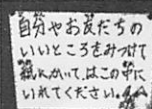 自分やお友だちの
いいところをみつけて
紙にかいて、はこの中に
いれてください。